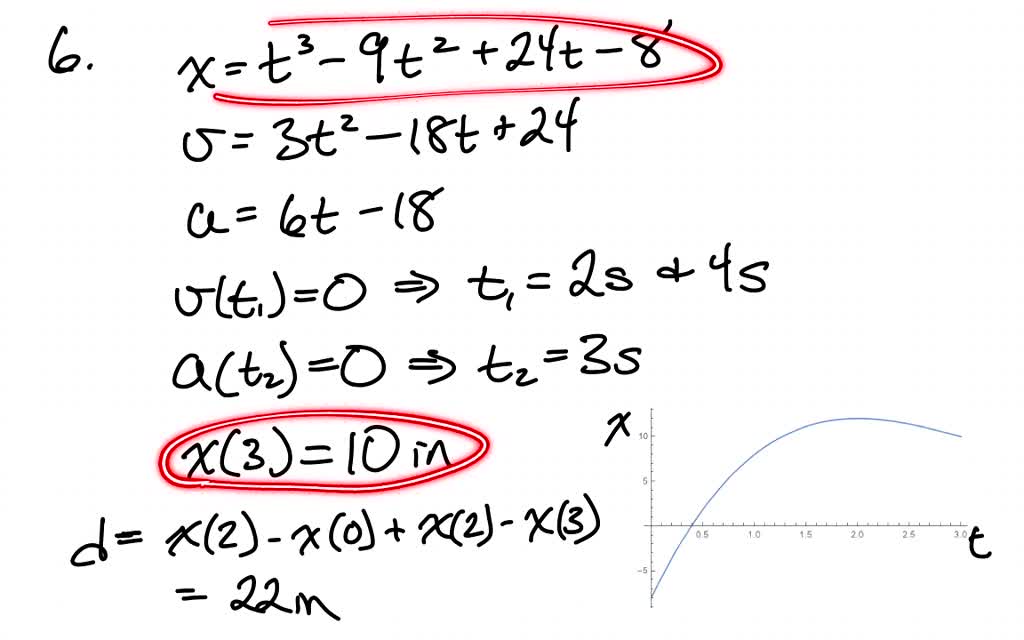 6. x = t³ - 9t² + 24t - 8
v = 3t² - 18t + 24
a = 6t - 18
v(t₁) = 0 ⇒ t₁ = 2s & 4s
a(t₂) = 0 ⇒ t₂ = 3s
x(3) = 10 in
d = x(2) - x(0) + x(2) - x(3)
= 22 in
x
10
5
-5
0.5 1.0 1.5 2.0 2.5 3.0 t